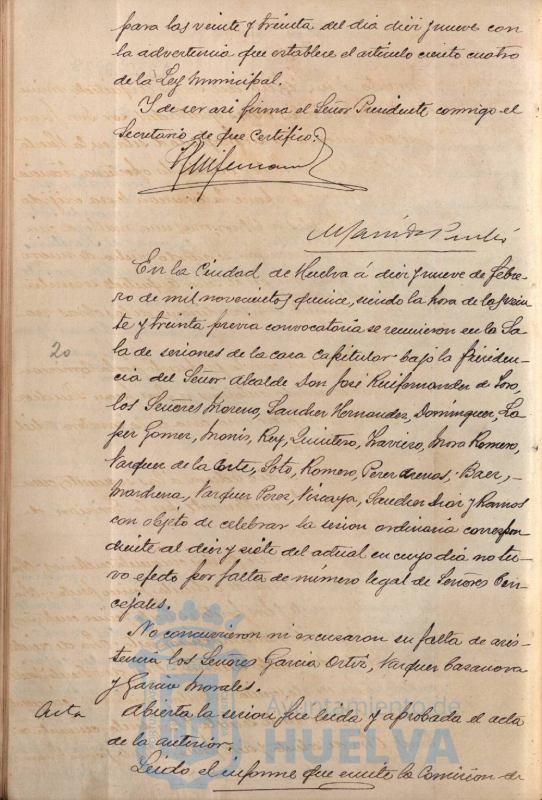 para las veinte y treinta del dia diez y nueve con
la advertencia que establece el articulo ciento cuatro
de la Ley municipal.
Y de ser asi firma el Señor Presidente conmigo el
Secretario de que certifico.
En la Ciudad de Huelva á diez y nueve de Febre-
ro de mil novecientos quince, siendo la hora de las vein-
te y treinta previa convocatoria se reunieron en la Sa-
20
la de sesiones de la casa capitular bajo la Presiden-
cia del Señor Alcalde Don José Ruifernandez de Toro,
los Señores Moreno, Sanchez Hernandez, Dominguez, Lo-
pez Gomez, Monis, Rey, Quintero, Traviero, Mora Romero,
Vazquez de la Corte, Soto, Romero, Perez Arenas, Baez,
Marchena, Vazquez Perez, Vizcaya, Sanchez Diaz y Ramos
con objeto de celebrar la sesion ordinaria correspon-
diente al diez y siete del actual en cuyo dia no tu-
vo efecto por falta de número legal de Señores Con-
cejales.
No concurrieron ni excusaron su falta de asis-
tencia los Señores Garcia Ortiz, Vazquez Casanova
y Garcia Morales.
Acta
Abierta la sesion fue leida y aprobada el acta
de la anterior.
Leido el informe que emite la Comision de
Ayuntamiento de
HUELVA